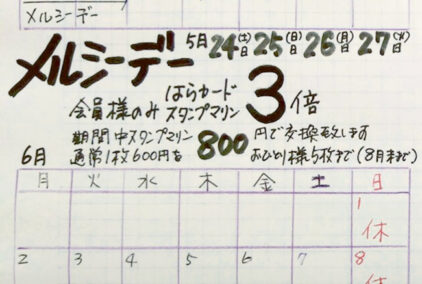 メルシーデー
メルシーデー 5月24(土)25(日)26(月)27(火)
会員様のみ はらカード スタンプマリン 3倍
期間中スタンプマリン
通常1枚600円を 800円で交換致します
おひとり様5枚まで(8月まで)
6月
月 火 水 木 金 土 日
1
休
2 3 4 5 6 7 8
休